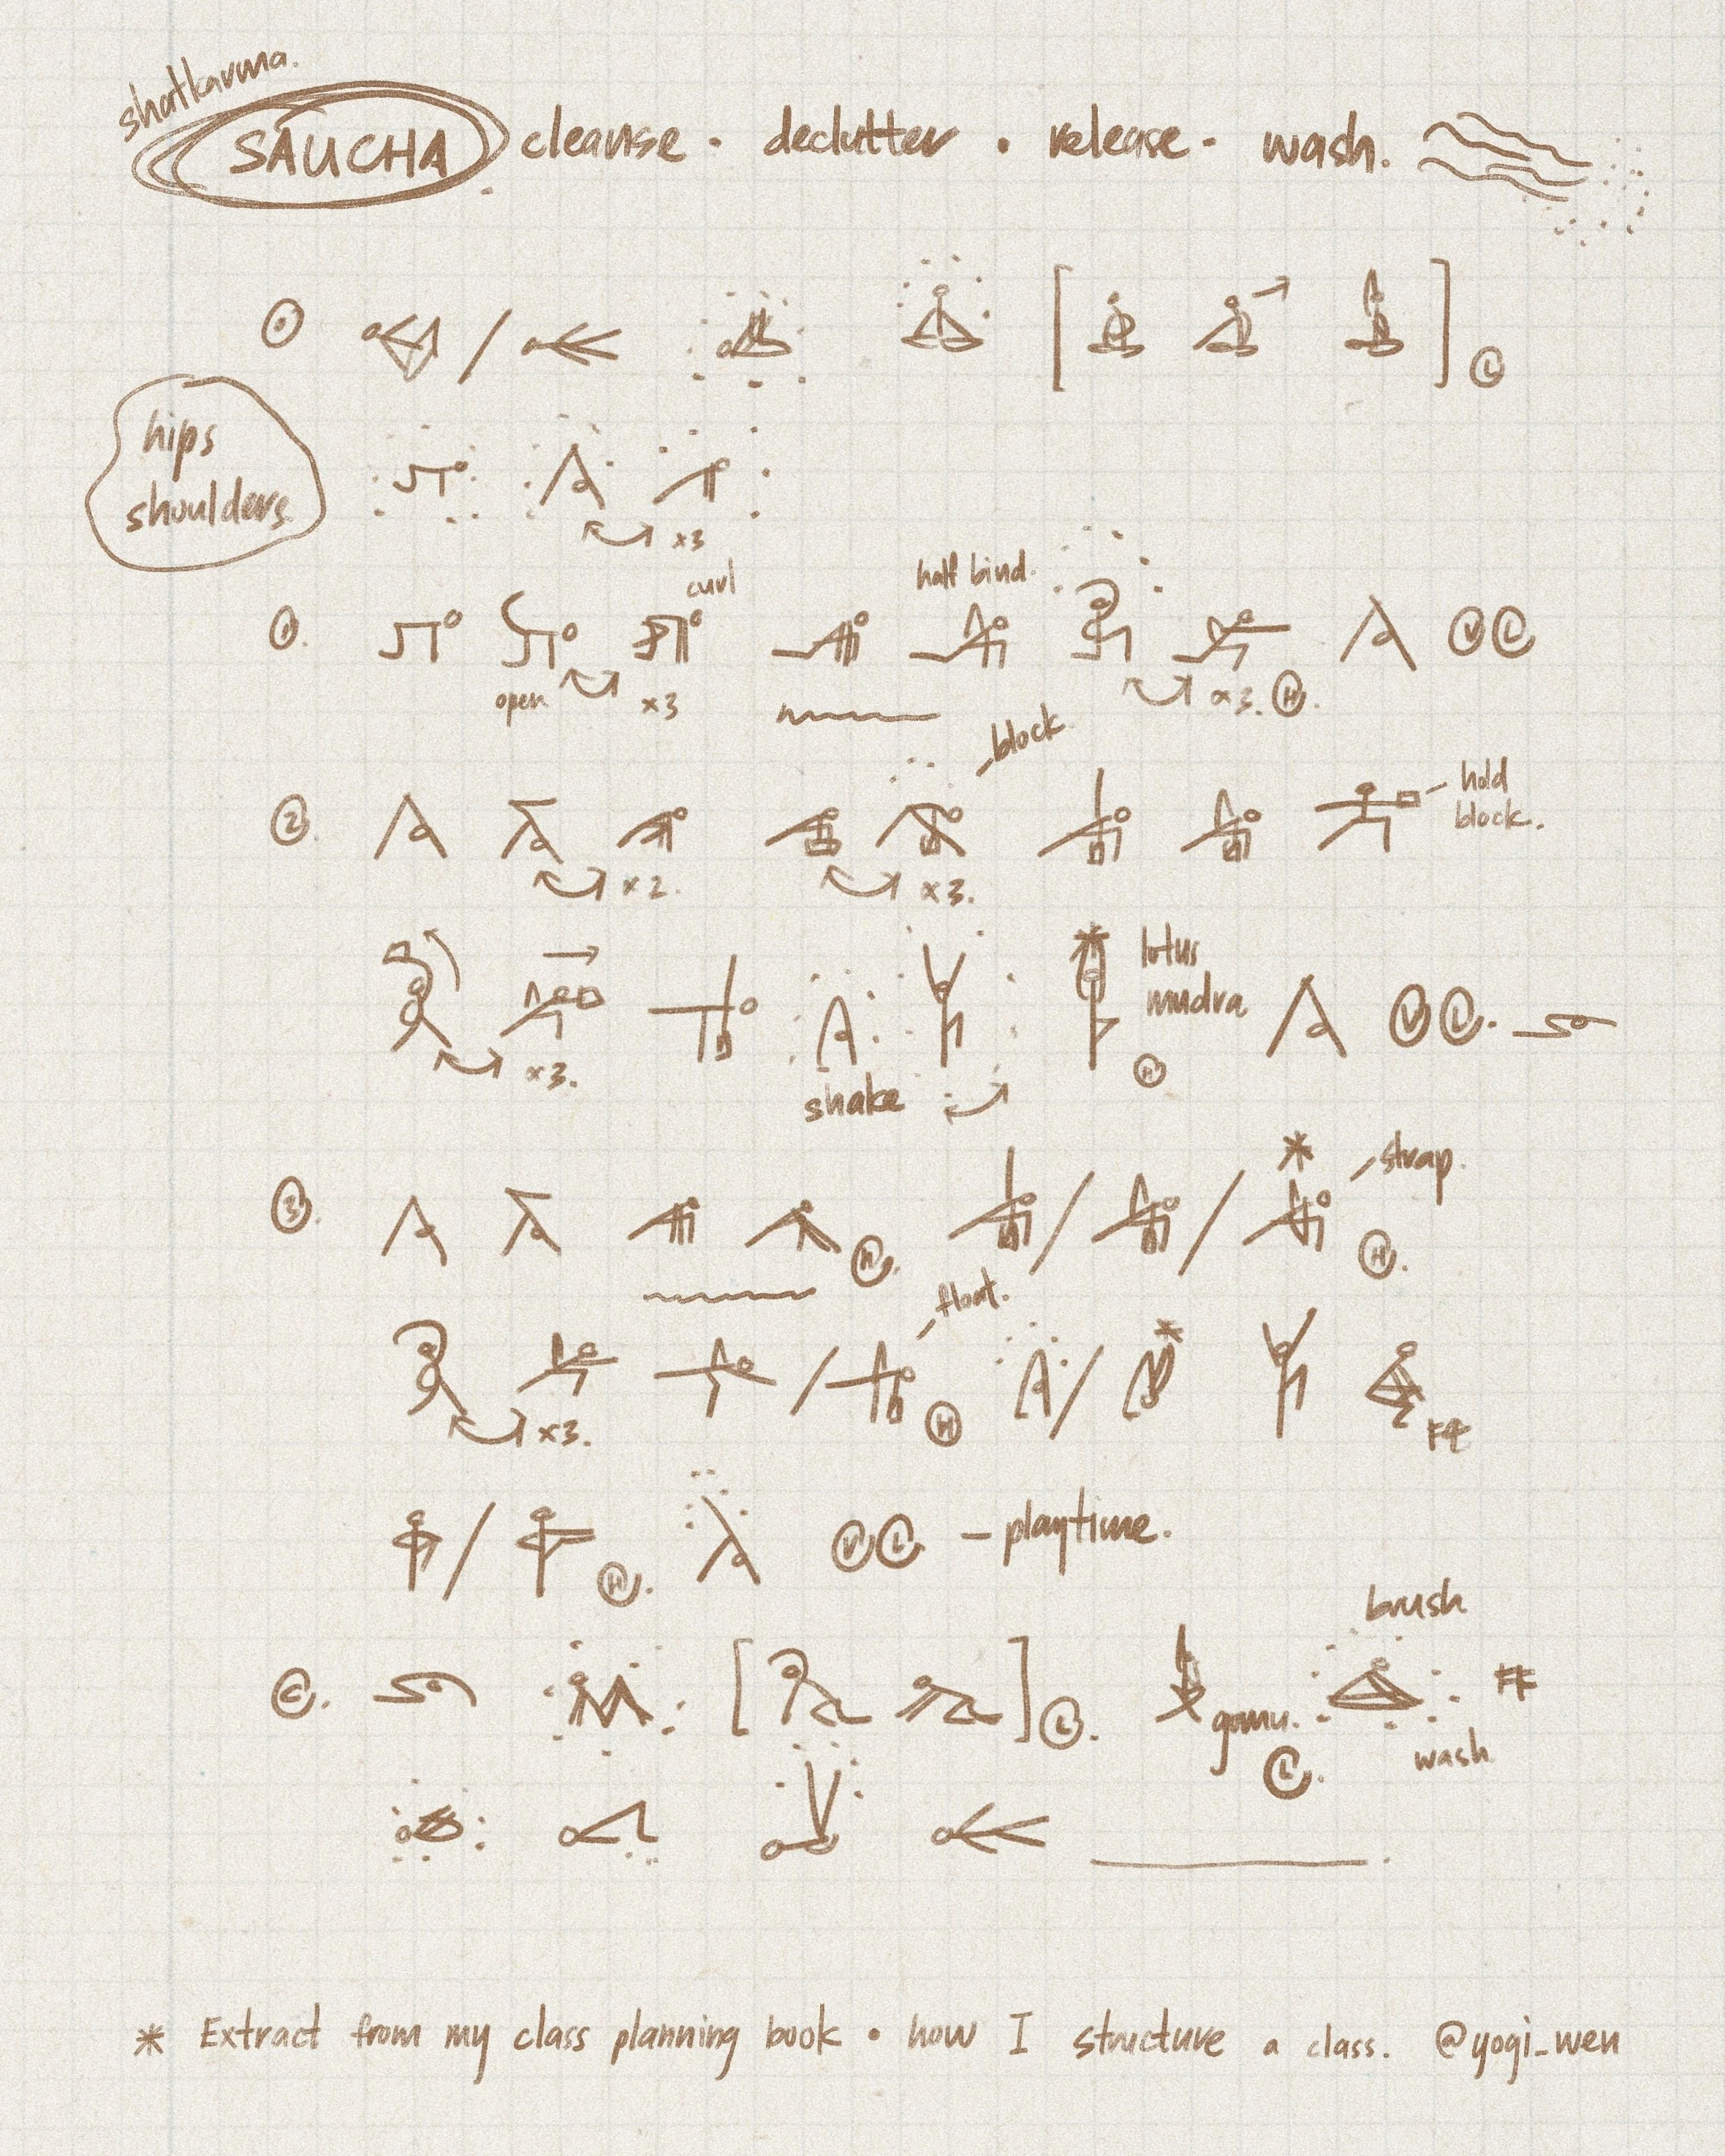 shatkarma.
SAUCHA cleanse · declutter · release · wash.
L
hips
shoulders
x3
1. curl half bind. V L
open x3 x3. H.
block
2. hold
block.
x2. x3.
lotus
mudra V L.
x3. H
shake
3. strap.
H. H.
float.
x3. H F4
H. V L - playtime.
brush
C. L. gomu. FF
L. wash
* Extract from my class planning book · how I structure a class. @yogi_wen